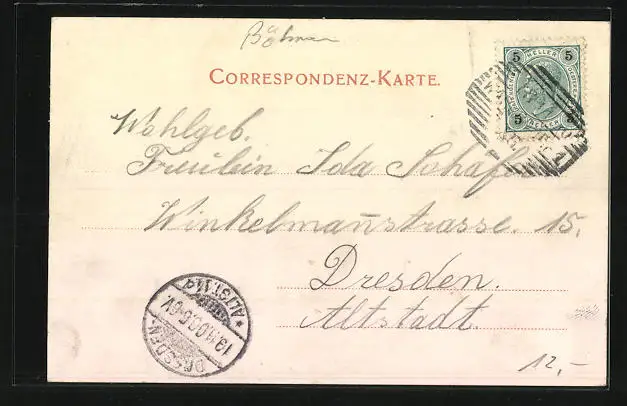 Böhmen
CORRESPONDENZ-KARTE.
5 HELLER 5
5 5
Wohlgeb.
Fräulein Ida Schäfer
Winkelmannstrasse. 15.
Dresden.
Altstadt.
DRESDEN-
* ALTST. 14
12,-